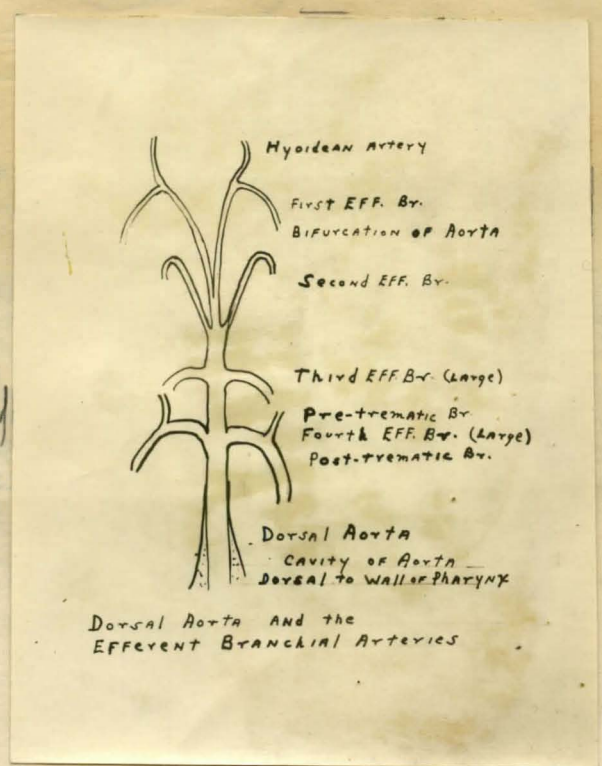 Hyoidean Artery
First Eff. Br.
Bifurcation of Aorta
Second Eff. Br.
Third Eff. Br. (Large)
Pre-trematic Br
Fourth Eff. Br. (Large)
Post-trematic Br.
Dorsal Aorta
Cavity of Aorta
Dorsal to Wall of Pharynx
Dorsal Aorta and the
Efferent Branchial Arteries